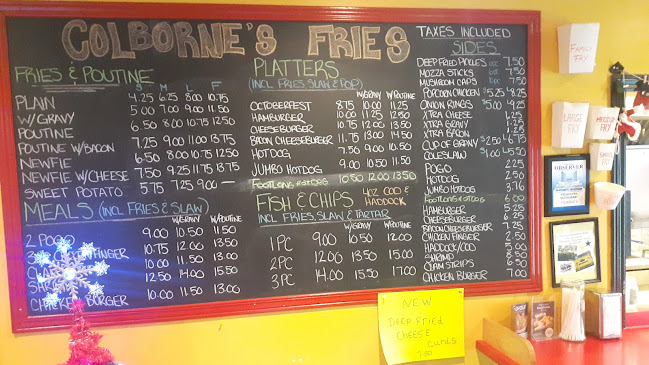 COLBORNE'S FRIES
TAXES INCLUDED
FRIES & POUTINE
S M L F
PLAIN 4.25 6.25 8.00 10.75
W/GRAVY 5.00 7.00 9.00 11.50
POUTINE 6.50 8.00 10.75 12.50
POUTINE W/BACON 7.25 9.00 11.00 13.75
NEWFIE 6.50 8.00 10.75 12.50
NEWFIE W/CHEESE 7.50 9.25 11.75 13.75
SWEET POTATO 5.75 7.25 9.00 —
MEALS (INCL FRIES & SLAW)
W/GRAVY W/POUTINE
2 POGO 9.00 10.50 11.50
FINGER 10.75 12.00 13.50
10.00 11.50 13.00
12.50 14.00 15.50
CHICKEN BURGER 10.00 11.50 13.00
PLATTERS
(INCL FRIES, SLAW & POP)
W/GRAVY W/POUTINE
OCTOBERFEST 8.75 10.00 11.25
HAMBURGER 10.00 11.25 12.50
CHEESEBURGER 10.75 12.00 13.50
BACON CHEESEBURGER 11.75 13.00 14.50
HOTDOG 7.50 9.00 10.50
JUMBO HOTDOG 9.00 10.50 11.50
FOOTLONG HOTDOG 10.50 12.00 13.50
FISH & CHIPS 4OZ COD & HADDOCK
INCL FRIES, SLAW & TARTAR
W/GRAVY W/POUTINE
1PC 9.00 10.50 12.00
2PC 12.00 13.50 15.00
3PC 14.00 15.50 17.00
SIDES
DEEP FRIED PICKLES 7.50
MOZZA STICKS 7.50
MUSHROOM CAPS 7.50
POPCORN CHICKEN S 5.25 L 8.25
ONION RINGS
XTRA CHEESE
XTRA GRAVY
XTRA BACON
CUP OF GRAVY
COLESLAW
POGO 2.25
HOTDOG 2.50
JUMBO HOTDOG 3.76
FOOTLONG HOTDOG 6.00
HAMBURGER
CHEESEBURGER
BACON CHEESEBURGER 7.25
CHICKEN FINGER 2.50
HADDOCK/COD 5.00
SHRIMP
CLAM STRIPS 6.50
CHICKEN BURGER 7.00
FAMILY FRY
LARGE FRY
MEDIUM FRY
SMALL FRY
OBSERVER
NEW
DEEP FRIED
CHEESE
CURDS
7.50